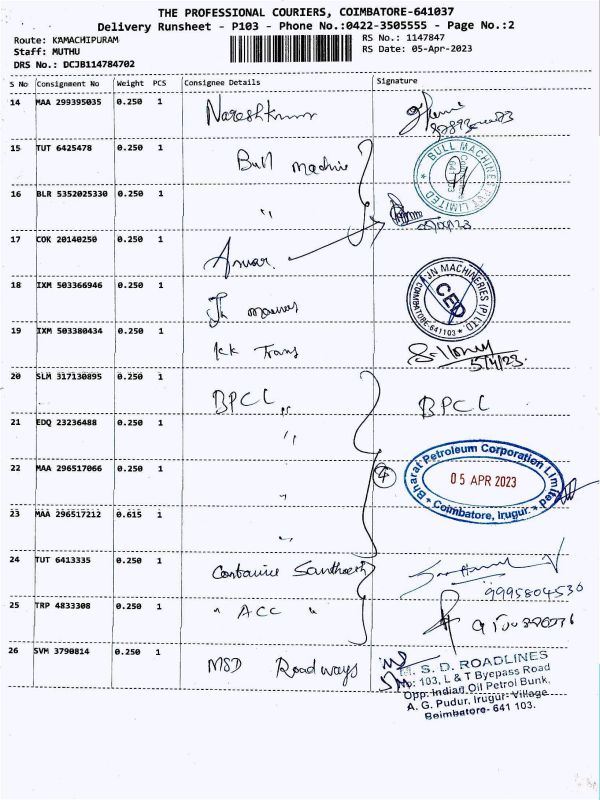 THE PROFESSIONAL COURIERS, COIMBATORE-641037
Delivery Runsheet - P103 - Phone No.:0422-3505555 - Page No.:2
Route: KAMACHIPURAM
Staff: MUTHU
DRS No.: DCJB114784702
RS No.: 1147847
RS Date: 05-Apr-2023
S No Consignment No Weight PCS Consignee Details Signature
14 MAA 299395035 0.250 1 Nareshkumar
15 TUT 6425478 0.250 1 Bull machine
BULL MACHINES PVT LIMITED
16 BLR 5352025330 0.250 1 "
17 COK 20140250 0.250 1 Amar.
18 IXM 503366946 0.250 1 Jn
JN MACHINERIES (P) LTD.
CED
COIMBATORE-641103
19 IXM 503380434 0.250 1 kk Trans
5/4/23.
20 SLM 317130895 0.250 1 BPCL BPCL
21 EDQ 23236488 0.250 1 "
22 MAA 296517066 0.250 1 "
4
Bharat Petroleum Corporation Limited
05 APR 2023
Coimbatore, Irugur.
23 MAA 296517212 0.615 1 "
24 TUT 6413335 0.250 1 Santhosh
9995804530
25 TRP 4833308 0.250 1 " ACC "
26 SVM 3790814 0.250 1 MSD Roadways
S. D. ROADLINES
No: 103, L & T Byepass Road
Opp. Indian Oil Petrol Bunk,
A. G. Pudur, Irugur- Village
Coimbatore- 641 103.